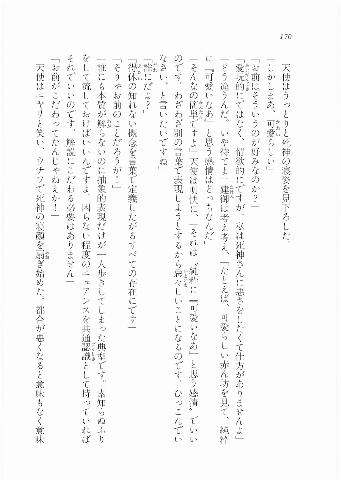 170
　天使はうっとりと死神の寝姿を見下ろした。
「しかしまあ、可愛らしい」
「お前はそういうのが好みなのか？」
「愛玩的にではなく、情欲的にですが、私は死神さんに悪さをしたくて仕方がありませんよ」
「どう違うんだ。いや待てよ」建御は考え考え、「たとえば、可愛らしい赤ん坊を見て、純粋
に『可愛いなあ』と思う感情はどっちなんだ」
「そんなの簡単ですよ」と天使は明快に、「それは、純粋に『可愛いなあ』と思う感情』でいい
のです。わざわざ別の言葉で表現しようとするから忌々しいことになるのです。ひっこんでい
なさい、と言いたいですね」
「誰にだよ？」
「得体の知れない概念を言葉で定義したがるすべての存在にです」
「そりゃお前のことだろうが！」
「誰にも本質が解らないのに抽象的表現だけが一人歩きしてしまった典型です。素知らぬふり
をして流しておけばいいんですよ。困らない程度のニュアンスを共通認識として持っていれば
それでいいのです。解説にこだわる必要はありません」
「お前がこだわってたんじゃねぇか！」
　天使はニヤリと笑い、ウチワで死神の寝顔を扇ぎ始めた。都合が悪くなると意味もなく意味